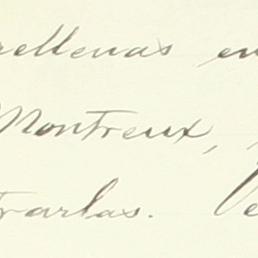 rellenas en
Montreux,
trarlas. Ve